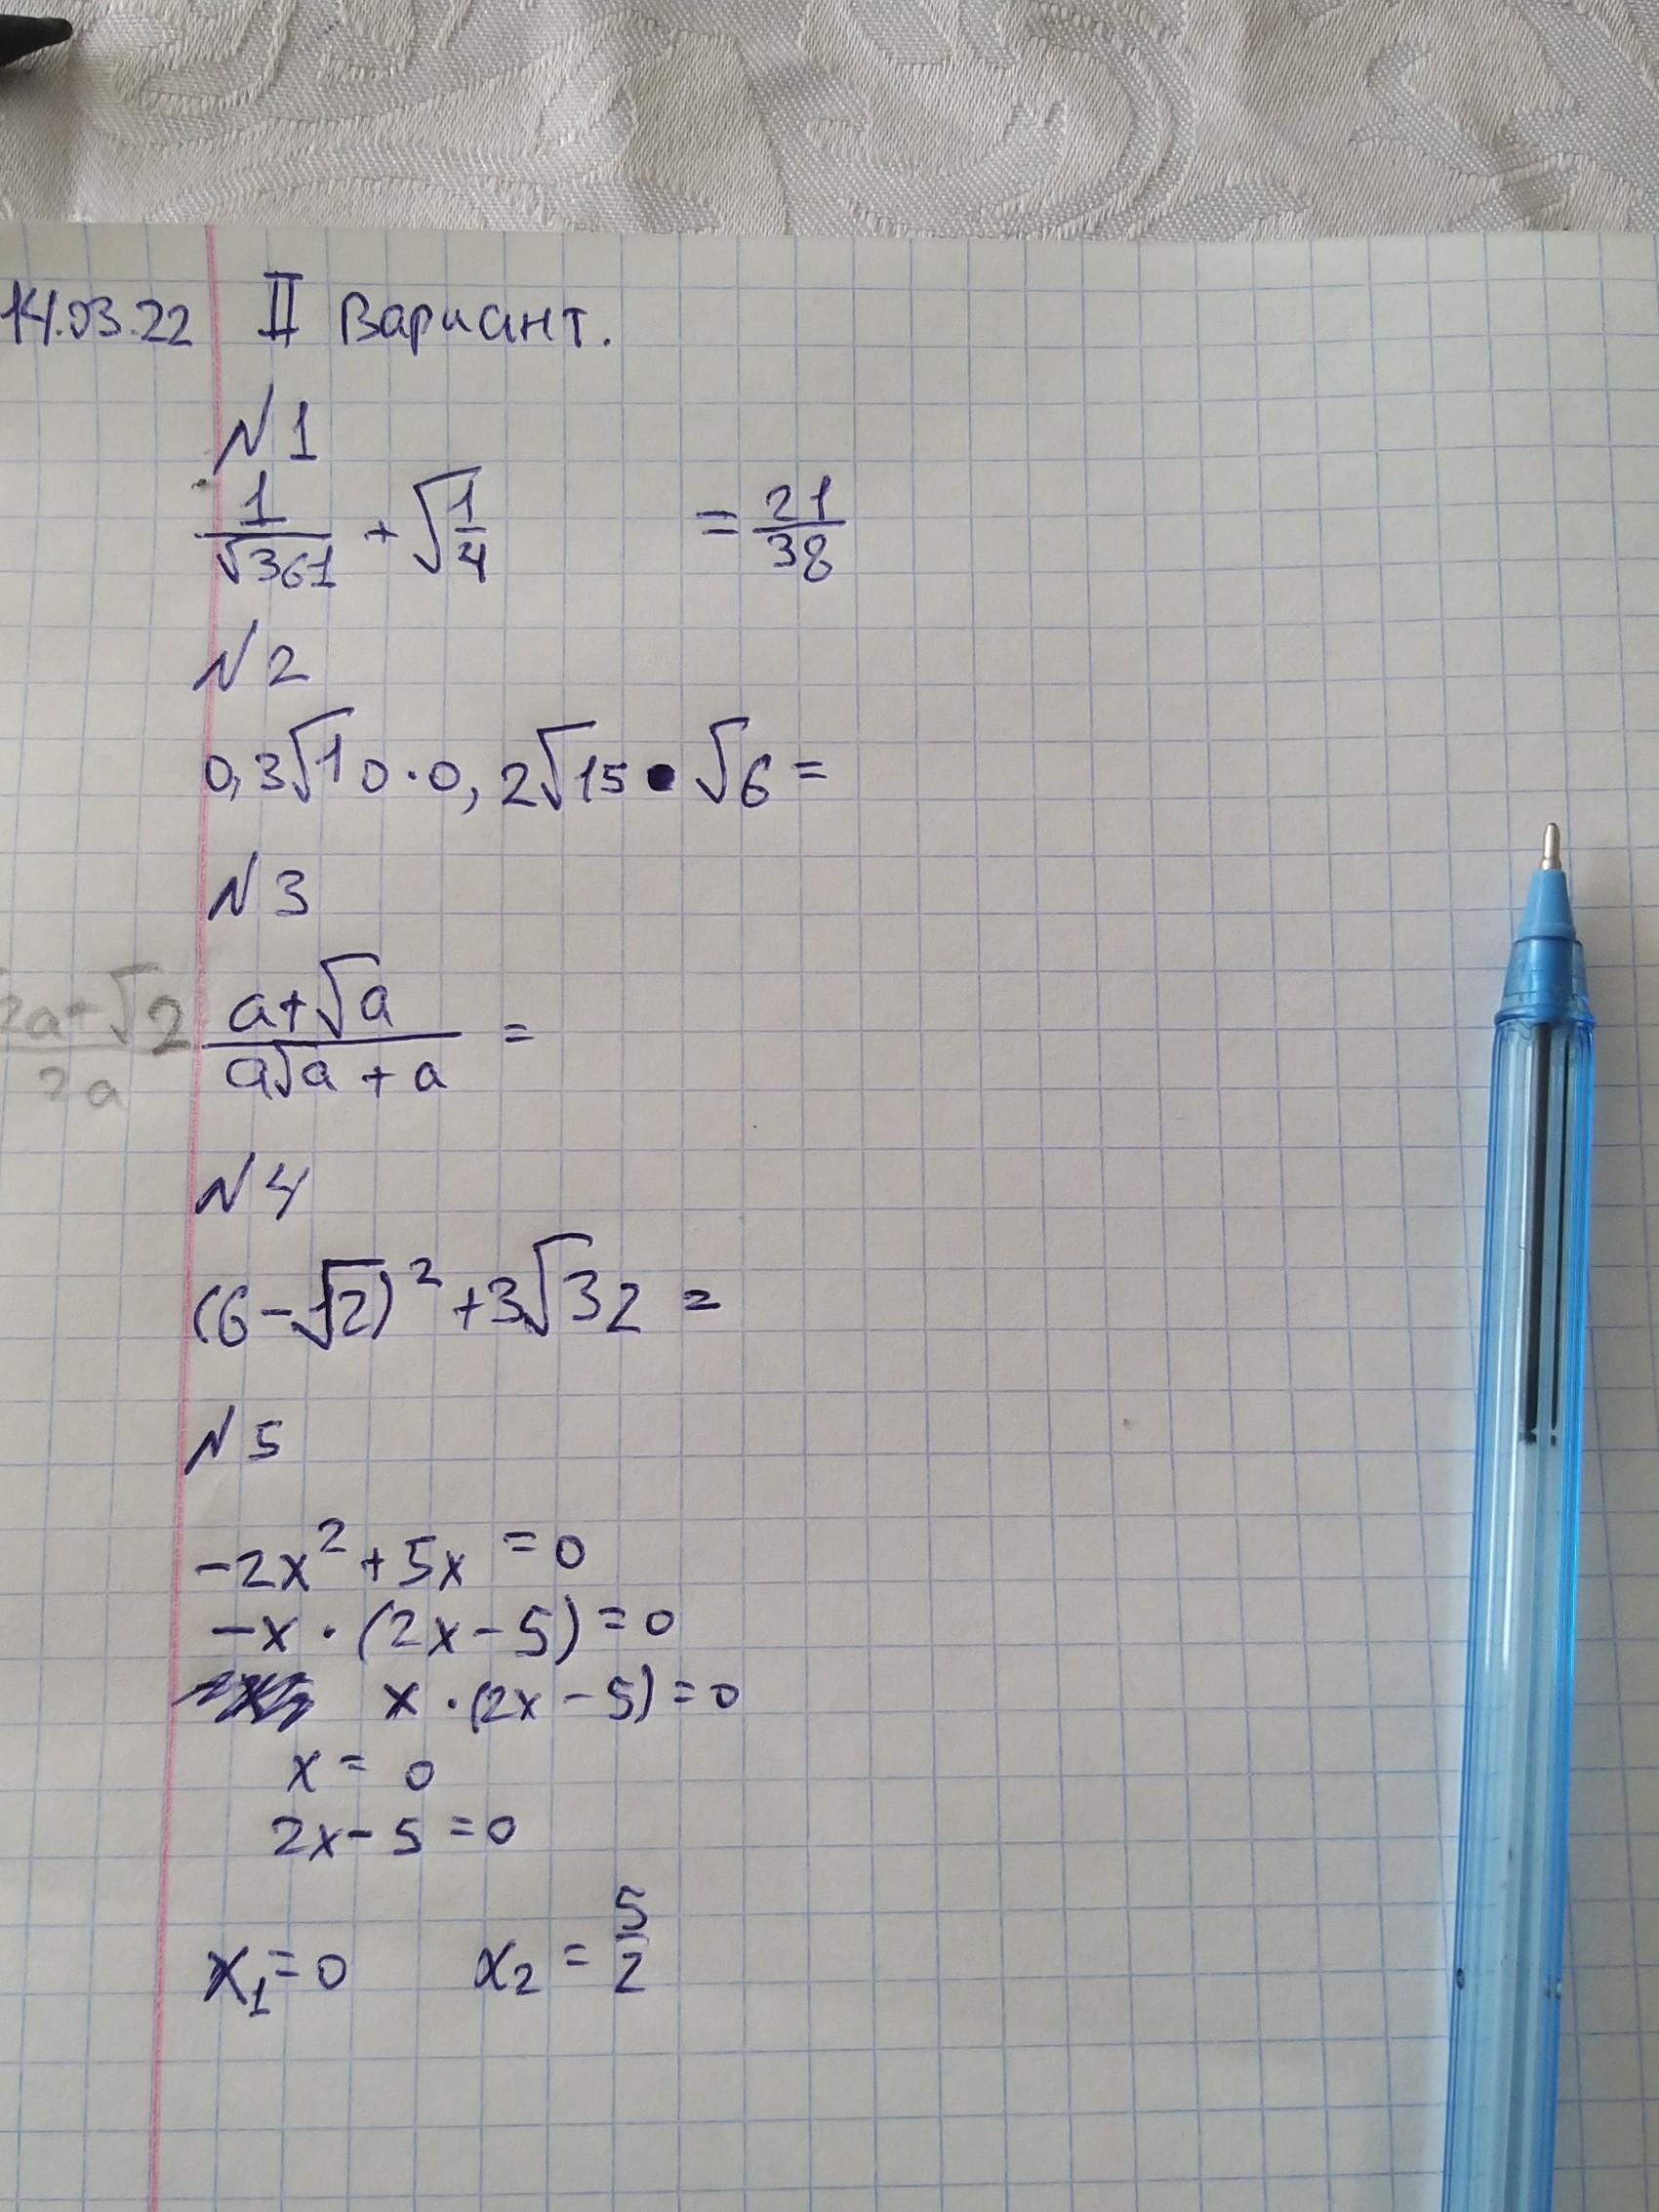 14.03.22 II Вариант.
N1
1/√361 + √1/4 = 21/38
N2
0,3√10·0,2√15•√6=
N3
2a+√2/2a
a+√a/a√a+a =
N4
(6-√2)²+3√32 =
N5
-2x²+5x=0
-x·(2x-5)=0
x·(2x-5)=0
x=0
2x-5=0
x₁=0 x₂=5/2